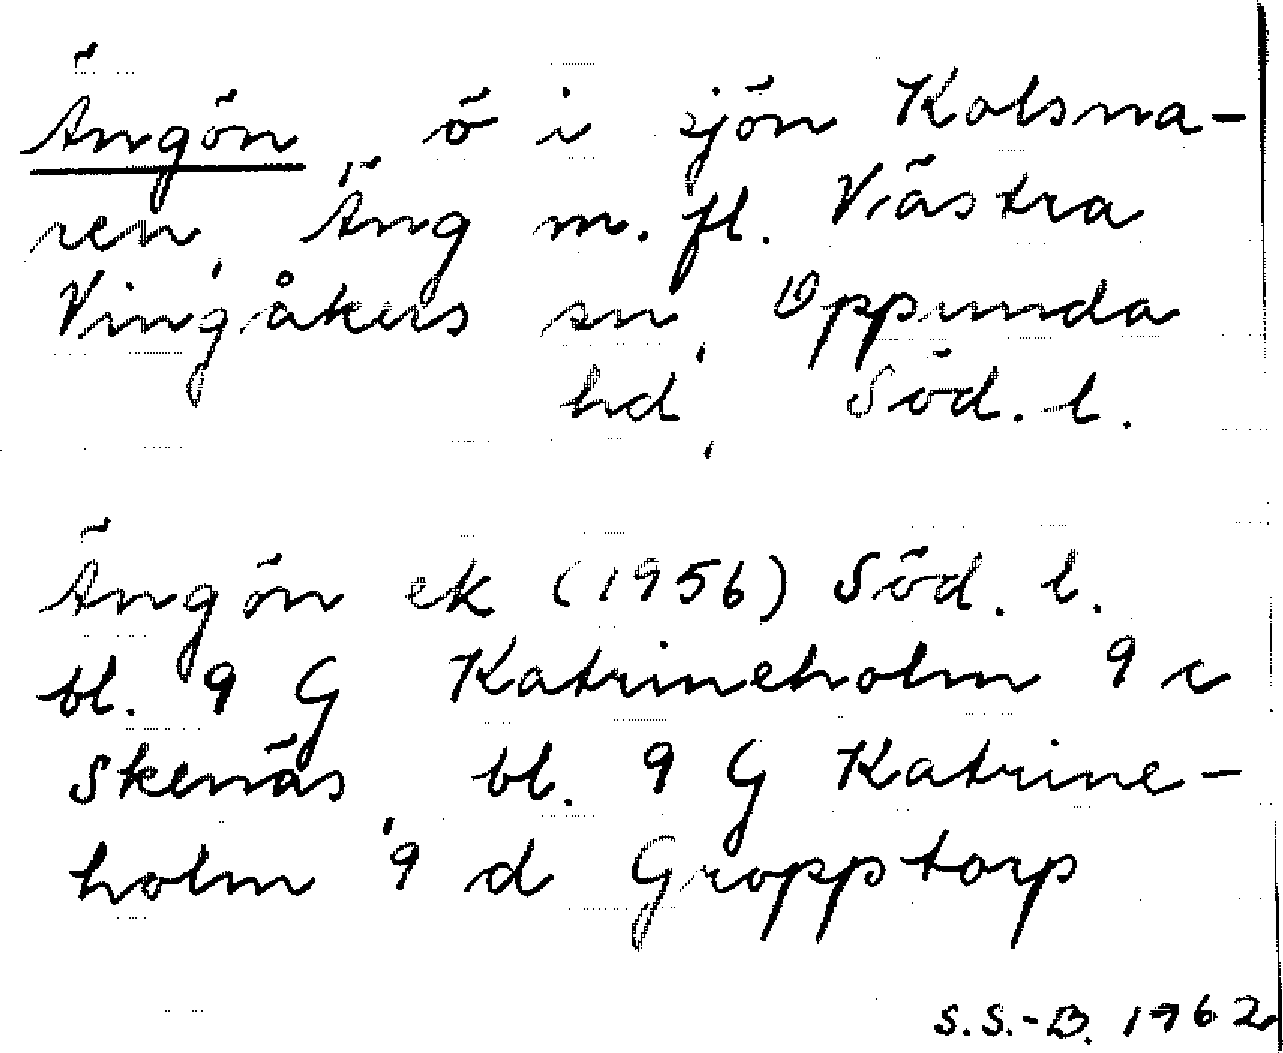 Ängön, ö i sjön Kolsna-
ren, Äng m. fl. Västra
Vingåkers sn, Oppunda
hd, Söd. l.
Ängön ek (1956) Söd. l.
bl. 9 G Katrineholm 9 c
Skenäs, bl. 9 G Katrine-
holm 9 d Gropptorp
S.S.-B. 1962